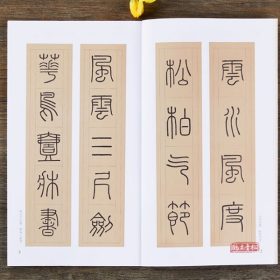 雲水風度
松柏气節
風雲三尺劍
華鳥壹牀書